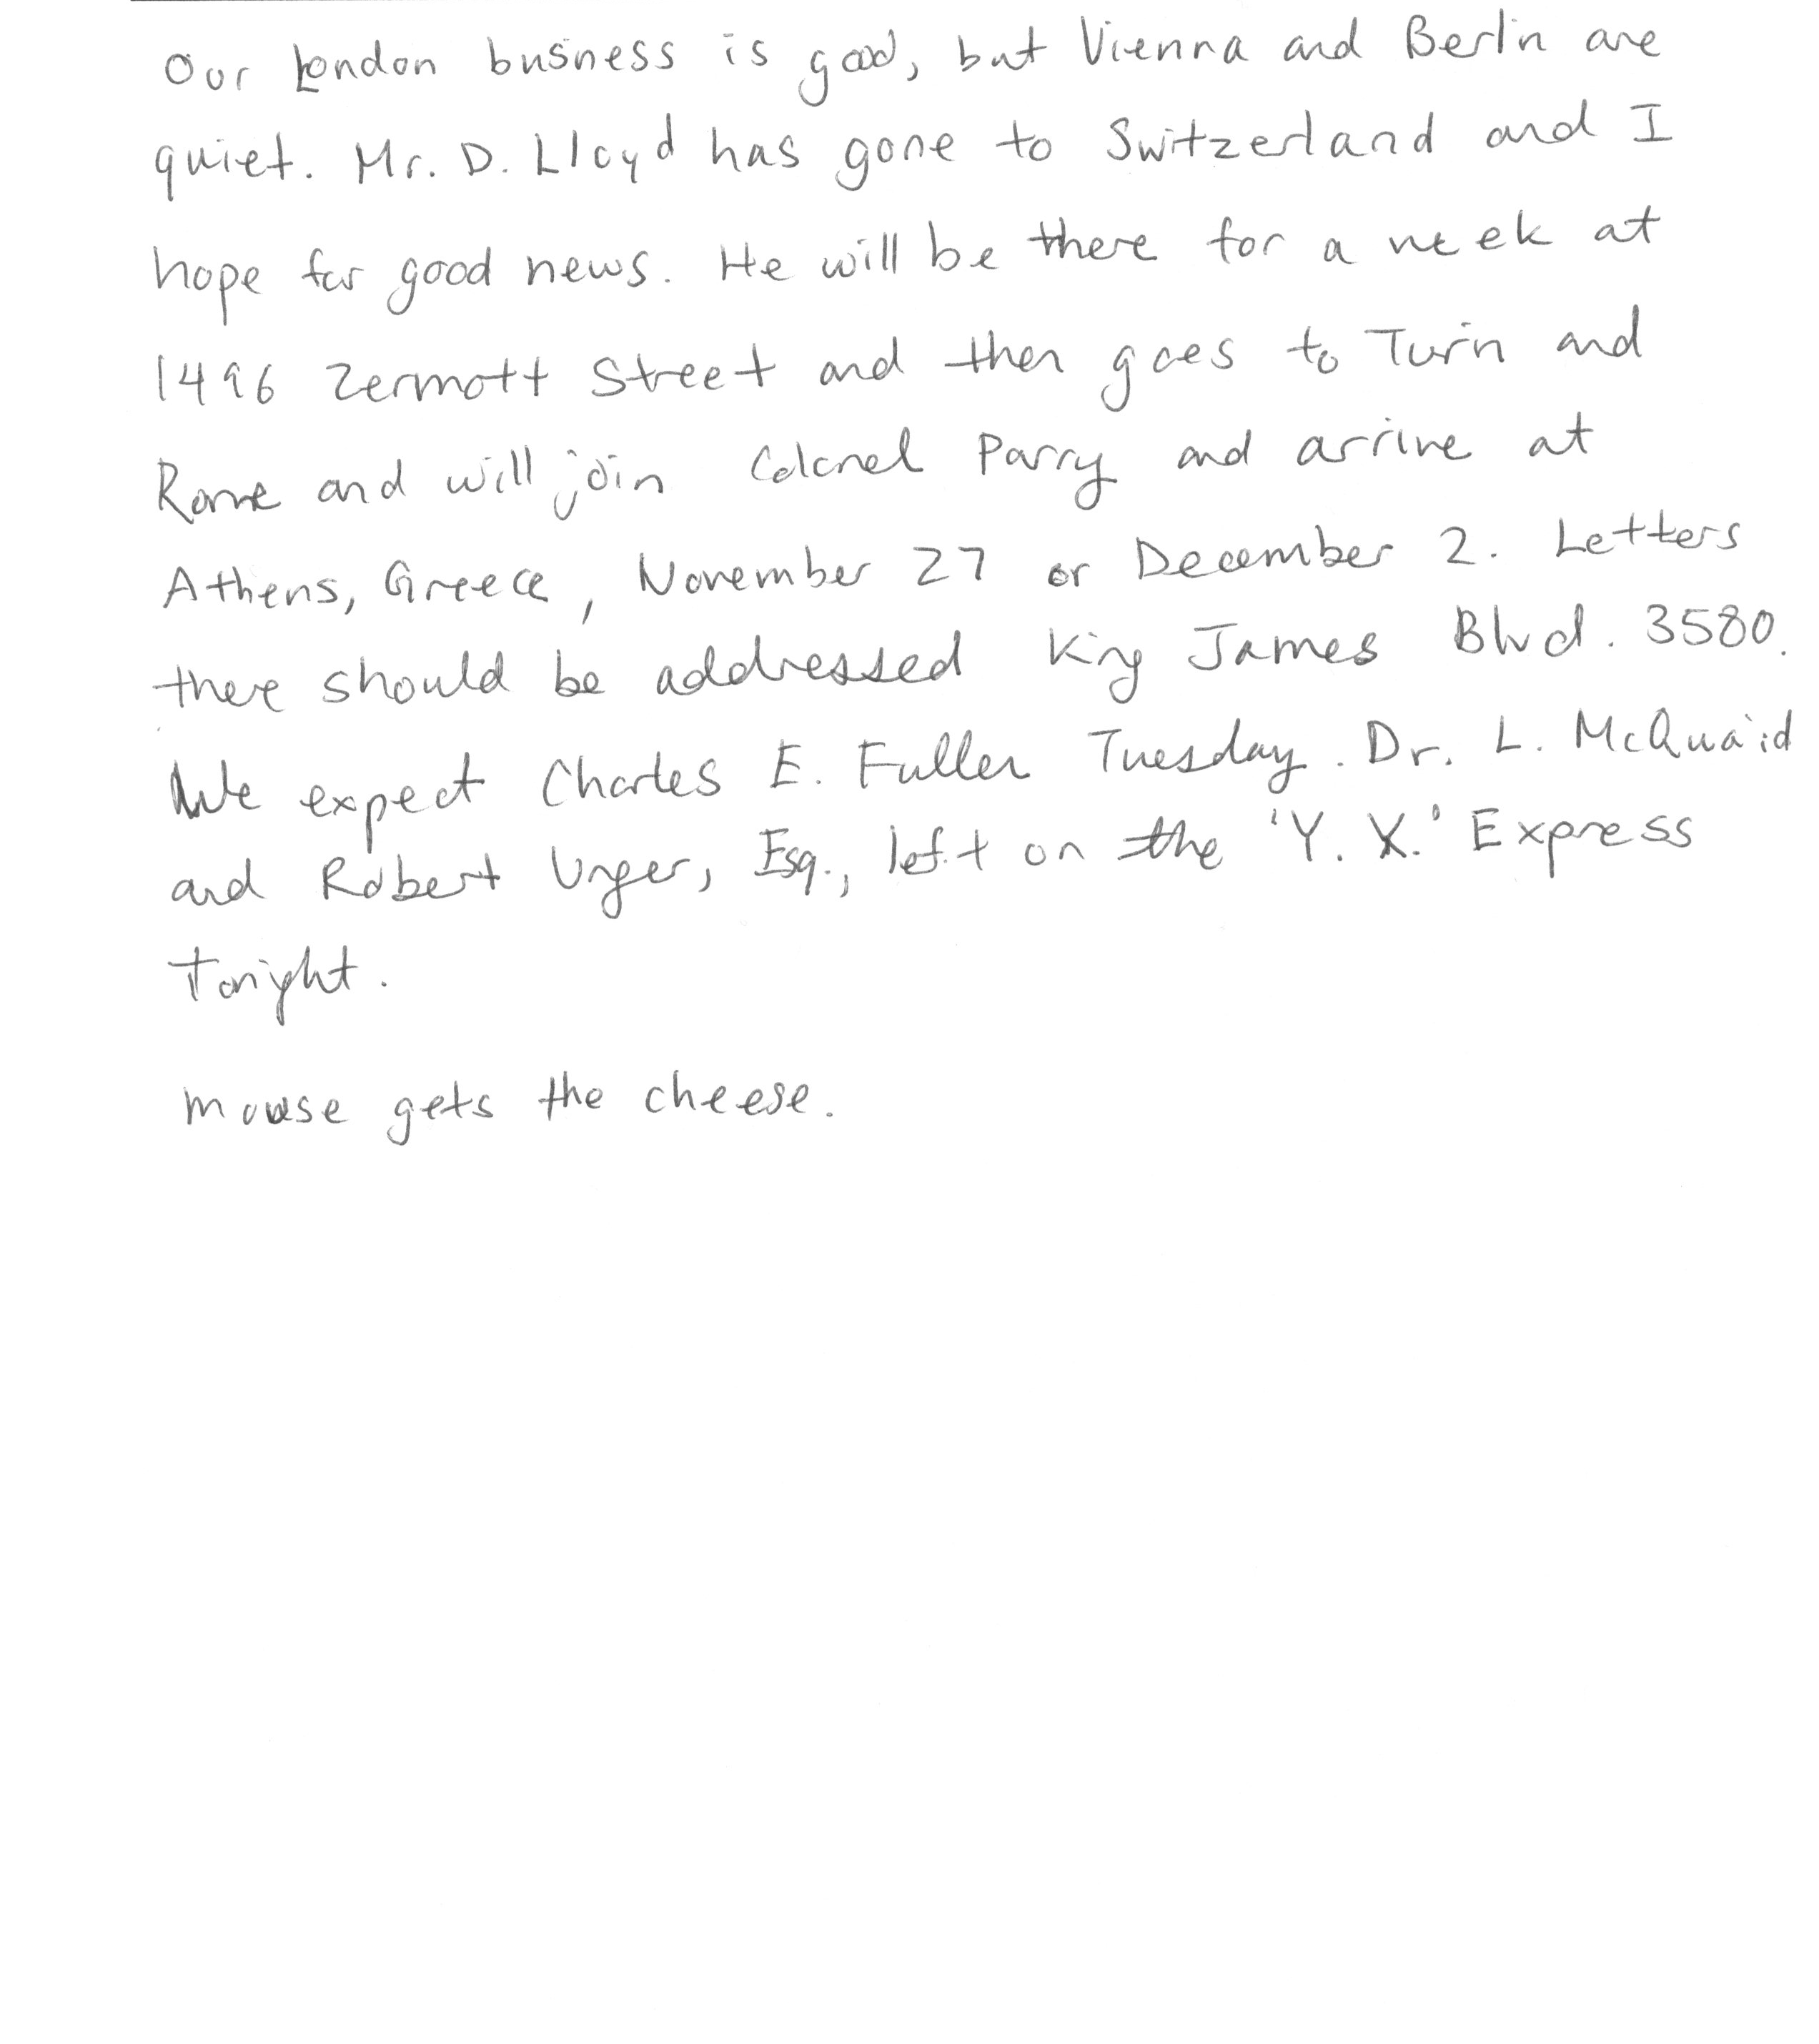 Our London business is good, but Vienna and Berlin are
quiet. Mr. D. Lloyd has gone to Switzerland and I
hope for good news. He will be there for a week at
1496 Zermott Street and then goes to Turin and
Rome and will join Colonel Parry and arrive at
Athens, Greece, November 27 or December 2. Letters
there should be addressed King James Blvd. 3580.
We expect Charles E. Fuller Tuesday. Dr. L. McQuaid
and Robert Unger, Esq., left on the 'Y. X.' Express
tonight.
mouse gets the cheese.